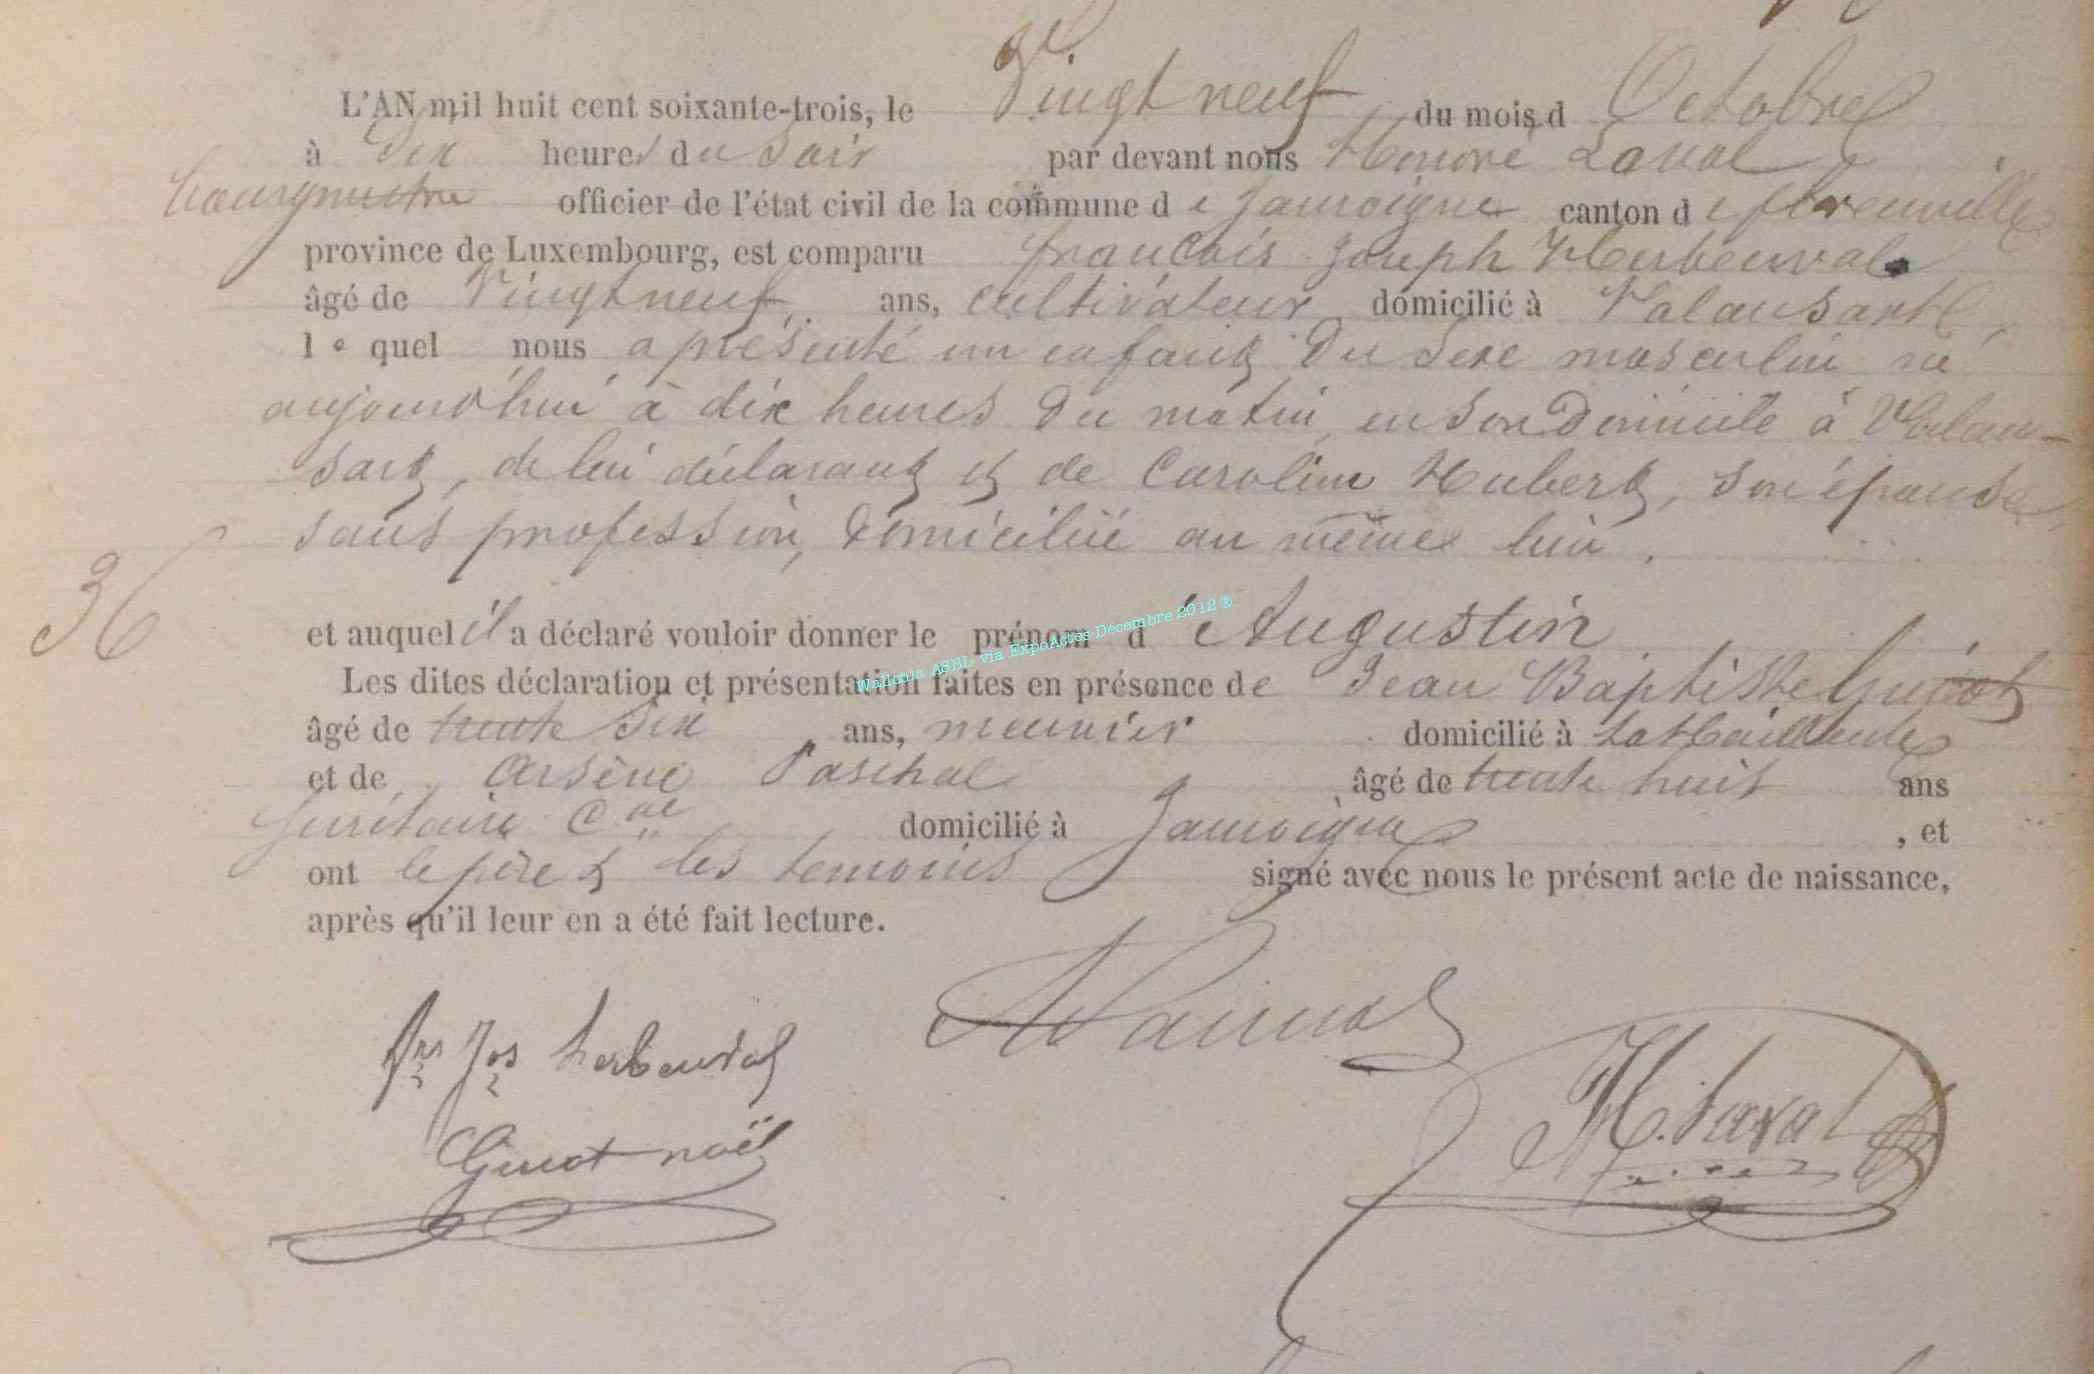 L'AN mil huit cent soixante-trois, le Vingt neuf du mois d Octobre
à Six heures du Soir par devant nous Honoré Laval
bourgmestre officier de l'état civil de la commune de Jamoigne canton de florenville
province de Luxembourg, est comparu francois Joseph Herbeuval
âgé de Vingt neuf ans, cultivateur domicilié à Valansart,
lequel nous a présenté un enfant du Sexe masculin né
aujourd'hui à dix heures du matin, en son Domicile à Valan-
sart, de lui déclarant et de Caroline Hubert, son épouse,
sans profession, domiciliée au même lieu.
36
et auquel il a déclaré vouloir donner le prénom d'Augustin.
Wallonia ASBL via ExpoActes Décembre 2012 ®
Les dites déclaration et présentation faites en présence de Jean Baptiste Guiot
âgé de trente Six ans, meunier domicilié à
et de Arsène Paschal âgé de trente huit ans
Secrétaire Cnal domicilié à Jamoigne, et
ont le père & les temoins signé avec nous le présent acte de naissance,
après qu'il leur en a été fait lecture.
frs Jos herbeuval
H. Laval
Guiot noël